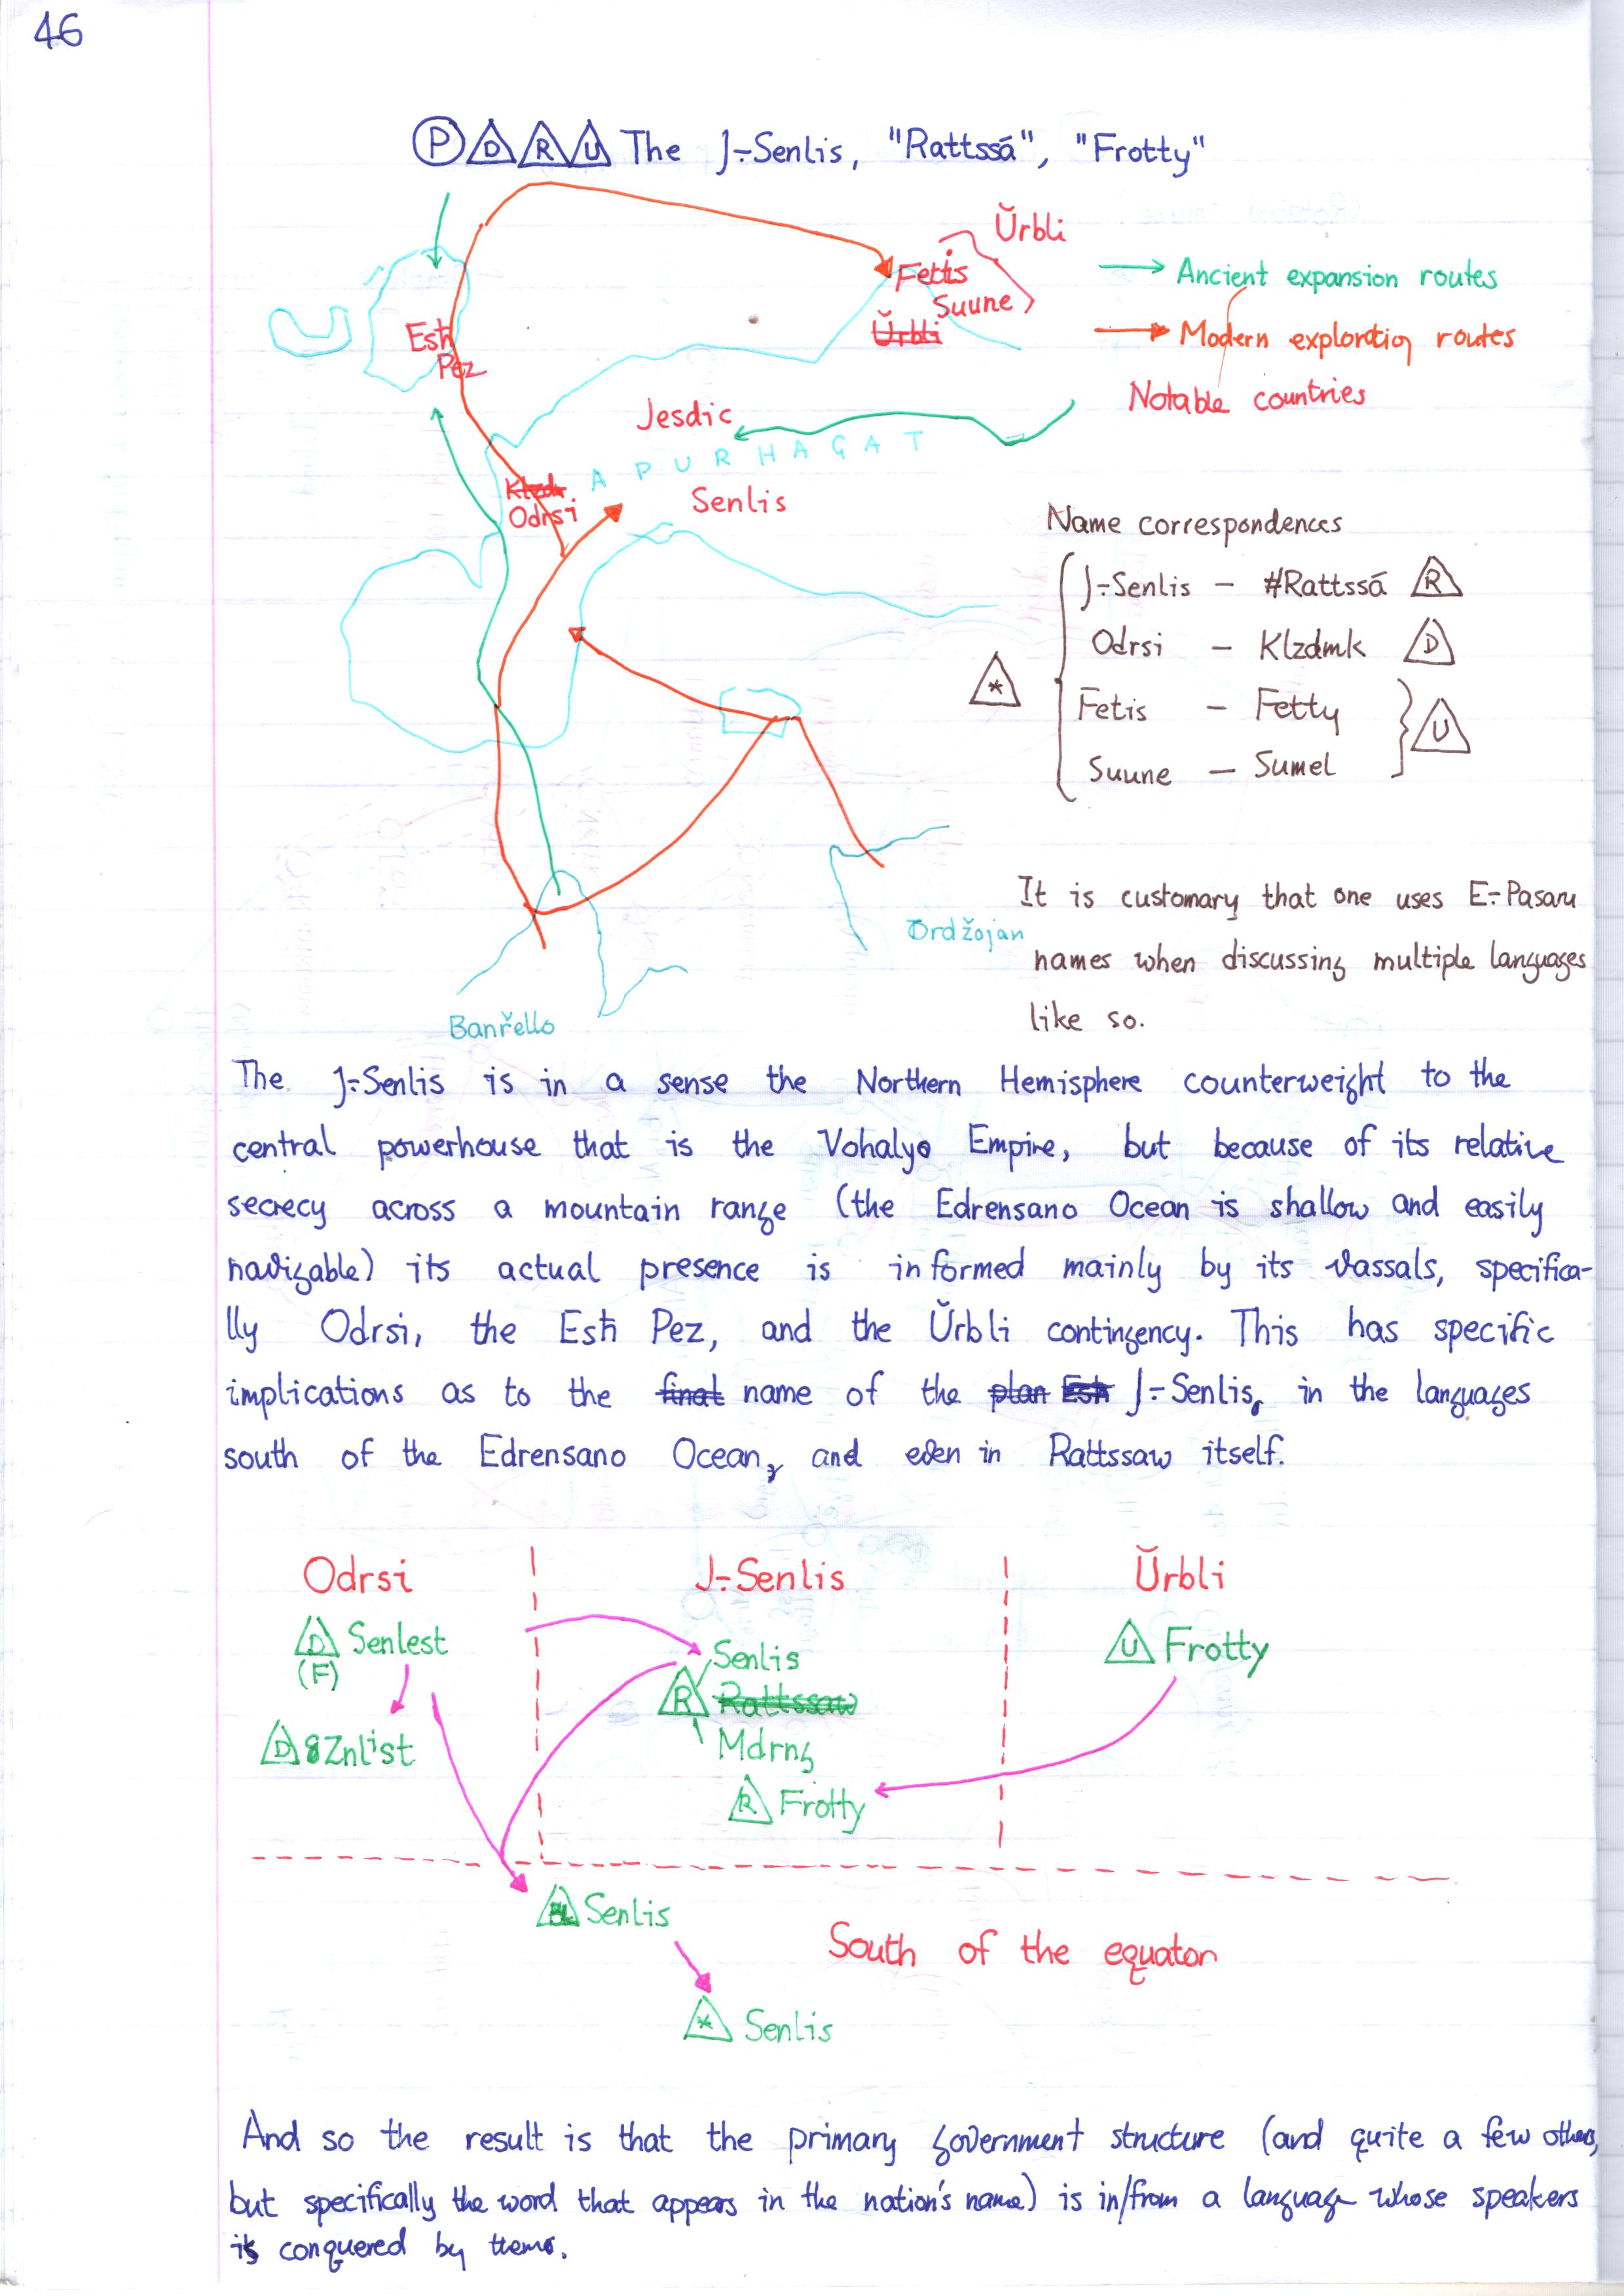 46
Ⓟ D R U The J÷Senlis, "Rattssá", "Frotty"
Ŭrbli
Fetis
Suune
Ŭrbli
Ancient expansion routes
Modern exploration routes
Notable countries
Esħ
Pez
Jesdic
APURHAGAT
Klzdk
Odrsi
Senlis
Name correspondences
J÷Senlis – #Rattssá R
Odrsi – Klzdmk D
Fetis – Fetty
Suune – Sumel
U
*
Ordžojan
Banřello
It is customary that one uses E÷Pasaru
names when discussing multiple languages
like so.
The J÷Senlis is in a sense the Northern Hemisphere counterweight to the
central powerhouse that is the Vohalyo Empire, but because of its relative
secrecy across a mountain range (the Edrensano Ocean is shallow and easily
navigable) its actual presence is informed mainly by its vassals, specifica-
lly Odrsi, the Esħ Pez, and the Ŭrbli contingency. This has specific
implications as to the final name of the plan Esħ J÷Senlis, in the languages
south of the Edrensano Ocean, and even in Rattssaw itself.
Odrsi
J÷Senlis
Ŭrbli
D Senlest
(F)
D Znlist
Senlis
R Rattssaw
Mdrng
R Frotty
U Frotty
Senlis
South of the equator
* Senlis
And so the result is that the primary government structure (and quite a few others,
but specifically the word that appears in the nation's name) is in/from a language whose speakers
is conquered by them.